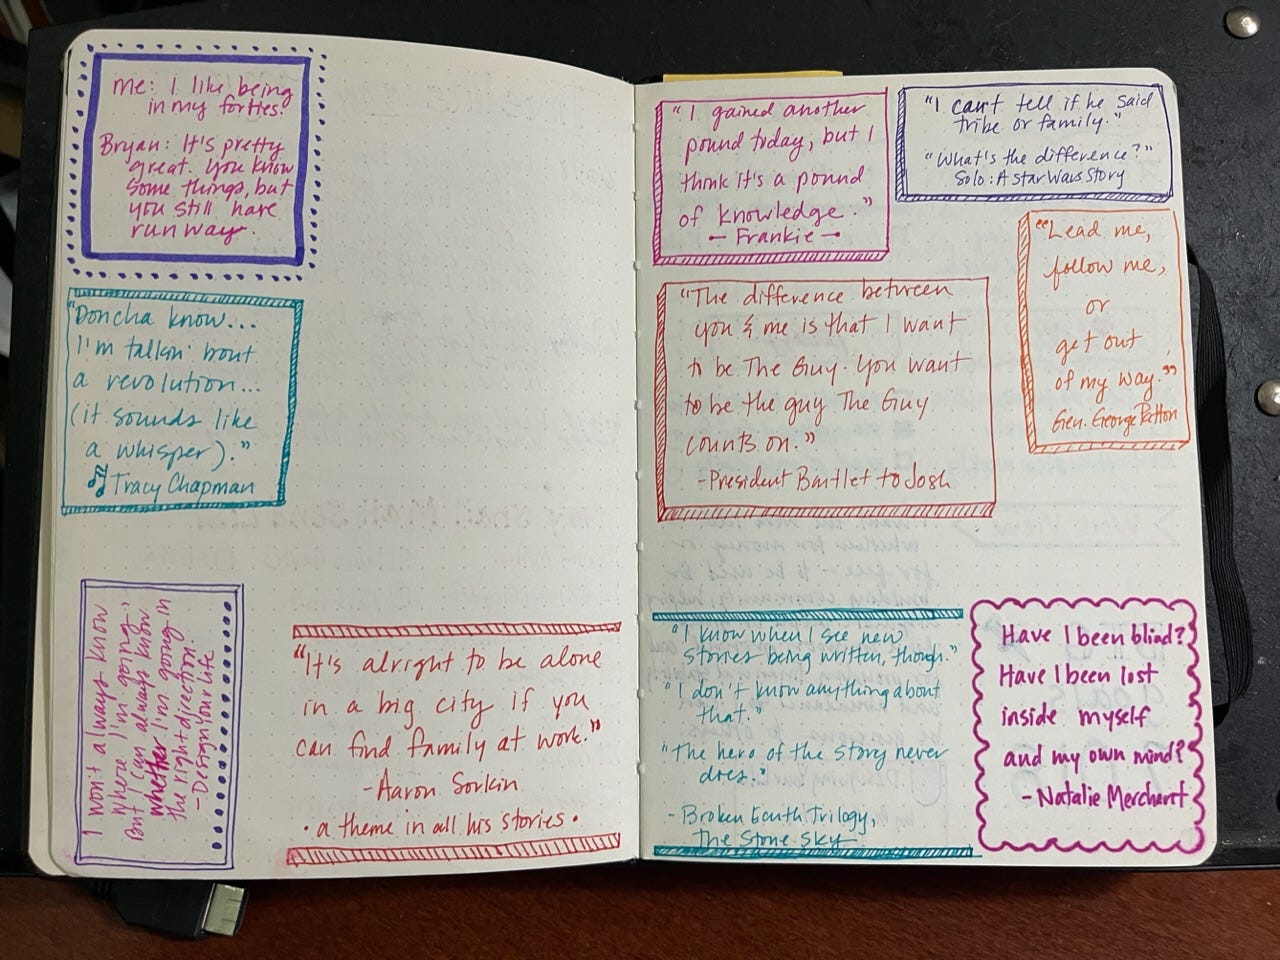 Me: I like being
in my forties.
Bryan: It's pretty
great. You know
some things, but
you still have
runway.
"Doncha know...
I'm talkin' bout
a revolution...
(it sounds like
a whisper)."
Tracy Chapman
I won't always know
where I'm going,
But I can always know
whether I'm going in
the right direction.
- Design Your Life
"It's alright to be alone
in a big city if you
can find family at work."
- Aaron Sorkin
• a theme in all his stories •
"I gained another
pound today, but I
think it's a pound
of knowledge."
- Frankie -
"I can't tell if he said
tribe or family."
"What's the difference?"
Solo: A Star Wars Story
"Lead me,
follow me,
or
get out
of my way."
Gen. George Patton
"The difference between
you & me is that I want
to be The Guy. You want
to be the guy The Guy
counts on."
- President Bartlet to Josh
"I know when I see new
stories being written, though."
"I don't know anything about
that."
"The hero of the story never
does."
- Broken Earth Trilogy,
The Stone Sky
Have I been blind?
Have I been lost
inside myself
and my own mind?
- Natalie Merchant